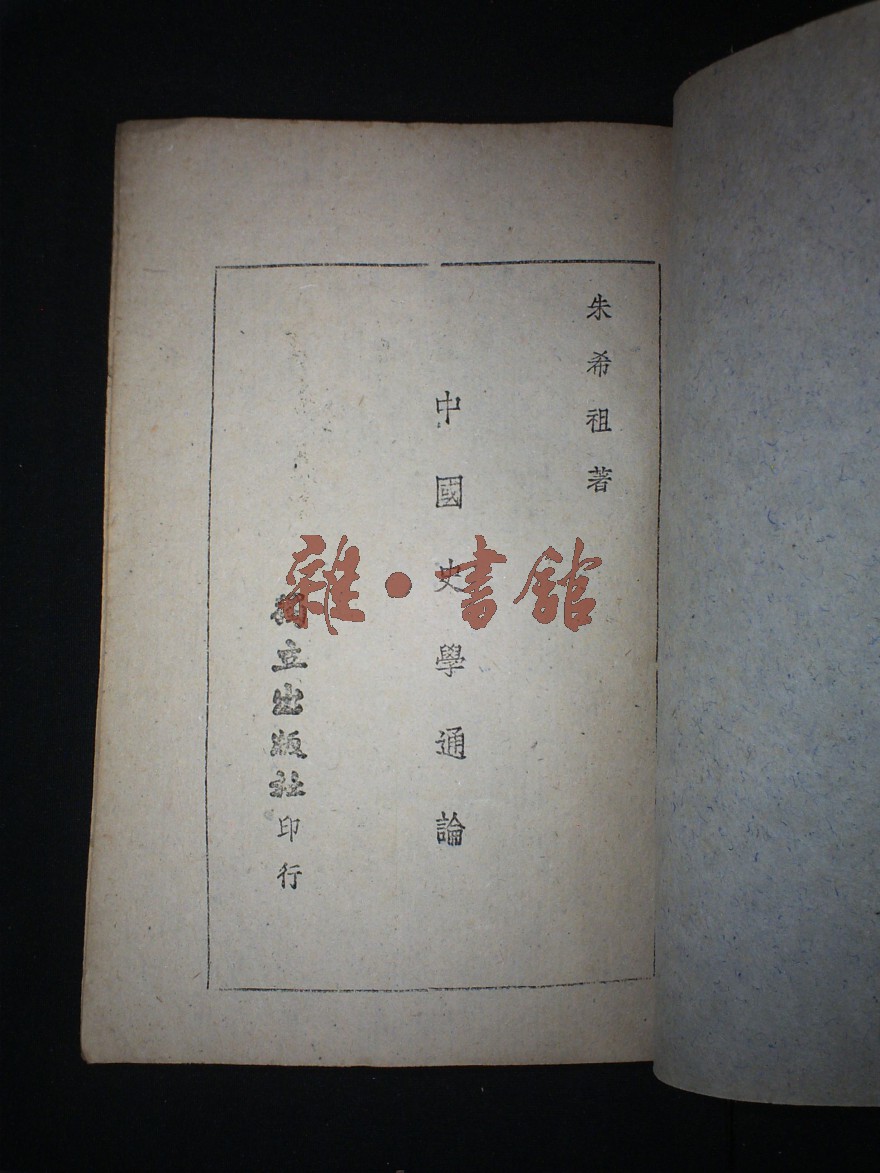 朱希祖著
中國史學通論
獨立出版社印行
雜·書館